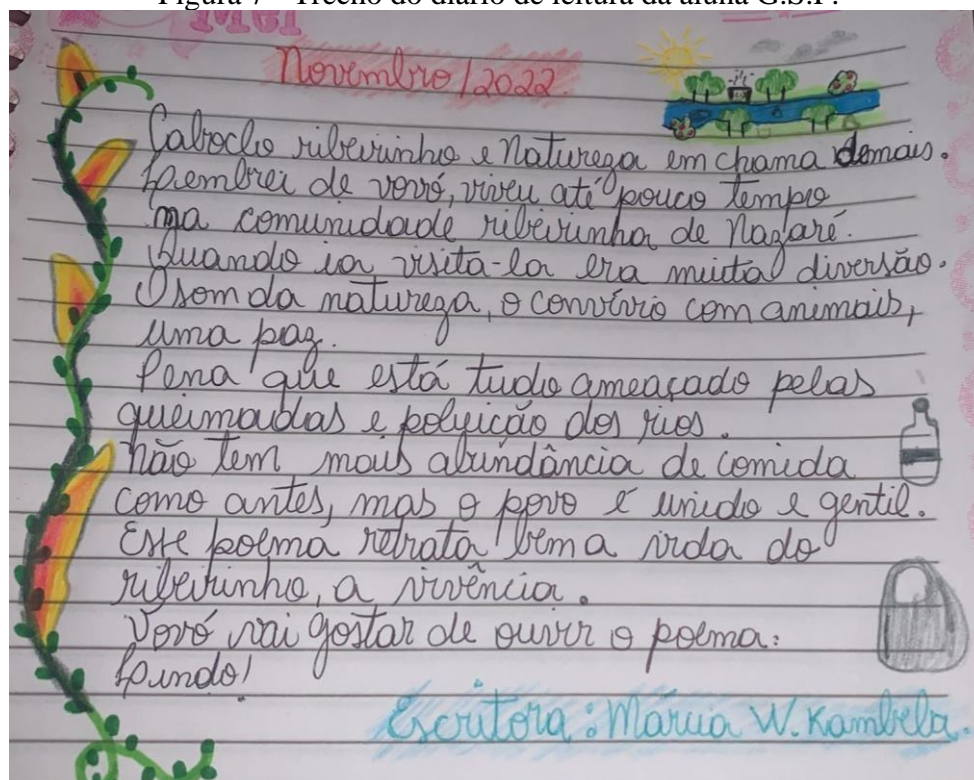 Figura 7 – Trecho do diário de leitura da aluna G.S.P.
Mel
Novembro/2022
Caboclo ribeirinho e Natureza em chama demais.
Lembrei de vovó, viveu até pouco tempo
na comunidade ribeirinha de Nazaré.
Quando ia visita-la era muita diversão.
O som da natureza, o convívio com animais,
uma paz.
Pena que está tudo ameaçado pelas
queimadas e poluição dos rios.
não tem mais abundância de comida
como antes, mas o povo é unido e gentil.
Este poema retrata bem a vida do
ribeirinho, a vivência.
Vovó vai gostar de ouvir o poema:
Lindo!
Escritora: Márcia W. Kambeba.